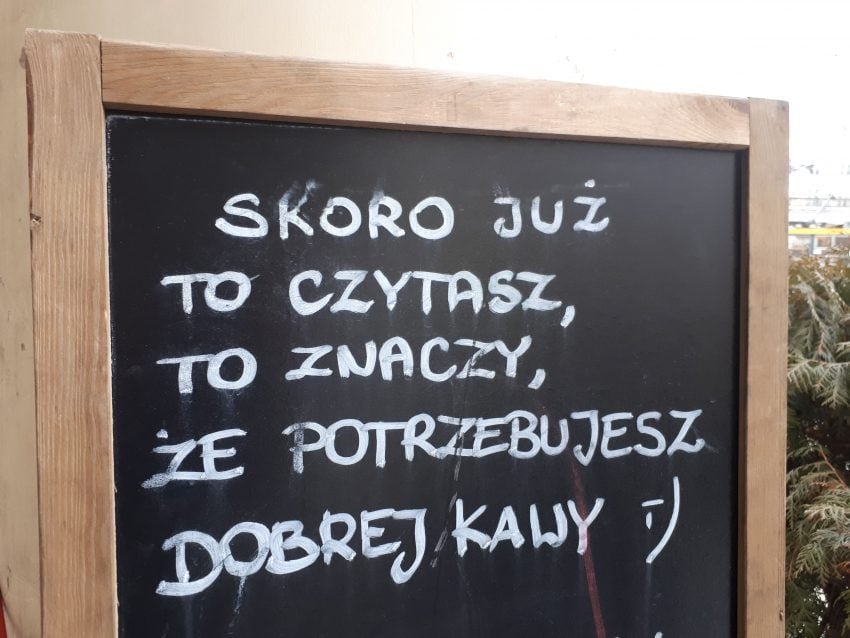 SKORO JUŻ
TO CZYTASZ,
TO ZNACZY,
ŻE POTRZEBUJESZ
DOBREJ KAWY :)